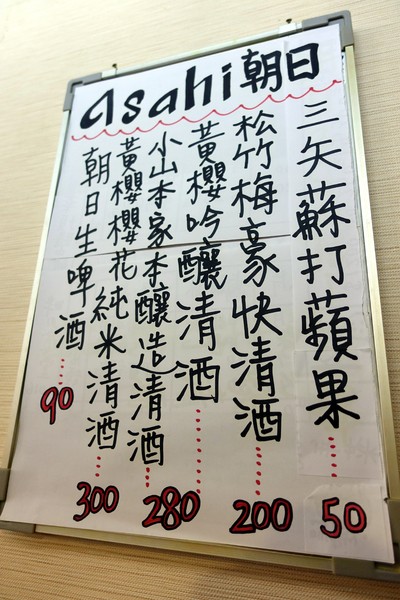 asahi朝日
三矢蘇打蘋果 50
松竹梅豪快清酒 200
黃櫻吟釀清酒
小山本家本釀造清酒 280
黃櫻櫻花純米清酒 300
朝日生啤酒 90